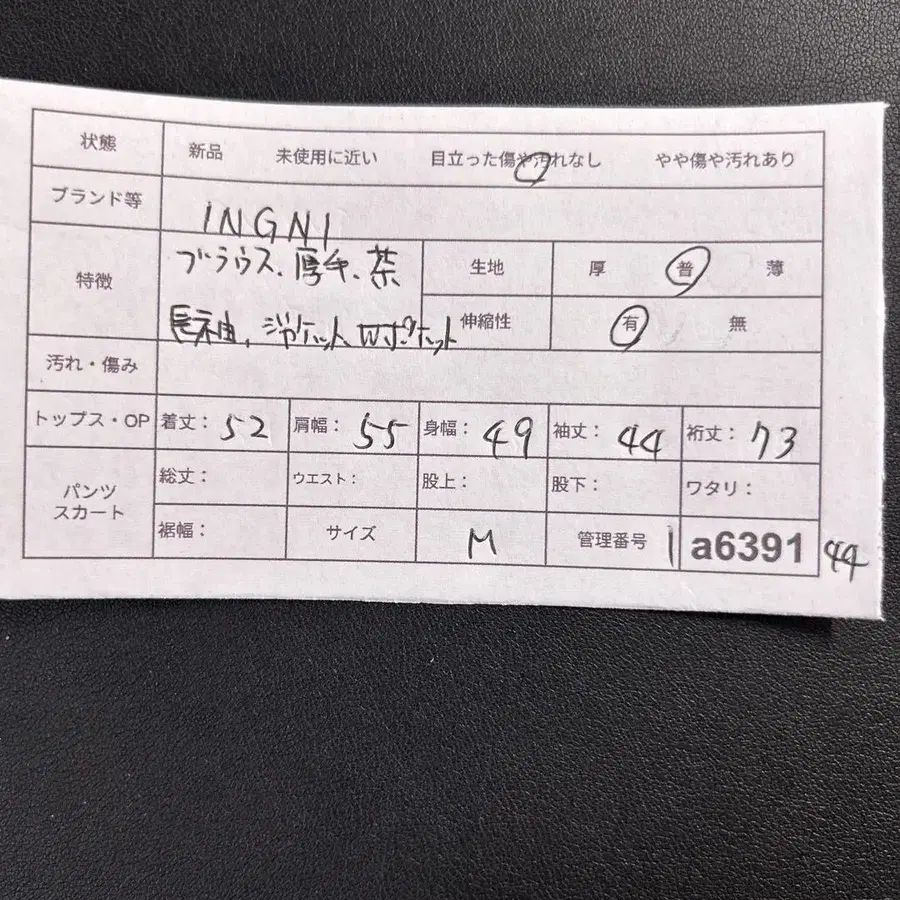 状態 新品 未使用に近い 目立った傷や汚れなし やや傷や汚れあり
ブランド等 INGNI
特徴 ブラウス、厚手、茶 生地 厚 普 薄
長袖、ジャケット、Wポケット 伸縮性 有 無
汚れ・傷み
トップス・OP 着丈: 52 肩幅: 55 身幅: 49 袖丈: 44 裄丈: 73
パンツ スカート 総丈: ウエスト: 股上: 股下: ワタリ:
裾幅: サイズ M 管理番号 1 a6391 44